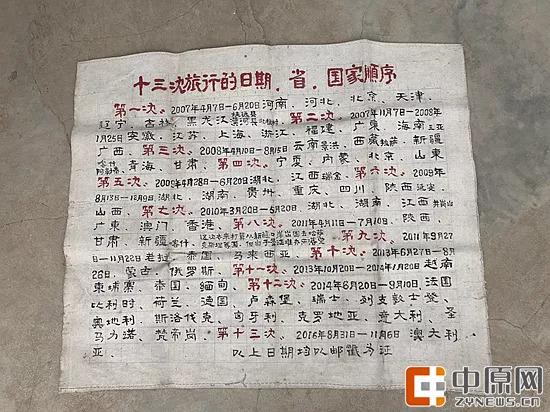 十三次旅行的日期.省.国家顺序
第一次。2007年4月7日-6月20日河南、河北、北京、天津、
辽宁、吉林、黑龙江、第二次。2007年11月7日-2008年
1月25日安徽、江苏、上海、浙江、福建、广东、海南三亚
广西、第三次。2008年4月10日-8月15日云南景洪、西藏拉萨、新疆
喀什、青海、甘肃、第四次。宁夏、内蒙、北京、山东
第五次。2009年4月28日-6月20日湖北、江西瑞金、第六次。2009年
8月13日-12月9日、湖北、湖南、贵州、重庆、四川、陕西延安、
山西、第七次。2010年3月20日-5月20日、湖北、湖南、江西井岗山
广东、澳门、香港、第八次。2011年4月11日-7月10日、陕西、
甘肃、新疆喀什、第九次。2011年9月27
日-11月22日老挝、泰国、马来西亚、第十次。2013年6月27日-8月
26日、蒙古、俄罗斯、第十一次。2013年10月20日-2014年1月20日越南
柬埔寨、泰国、缅甸、第十二次。2014年6月20日-9月10日、法国
比利时、荷兰、德国、卢森堡、瑞士、列支敦士登、
奥地利、斯洛伐克、匈牙利、克罗地亚、意大利、圣
马力诺、梵帝岗、第十三次。2016年8月31日-11月6日澳大利
亚.以上日期均以邮戳为证
中原网
ZYNEWS.CN